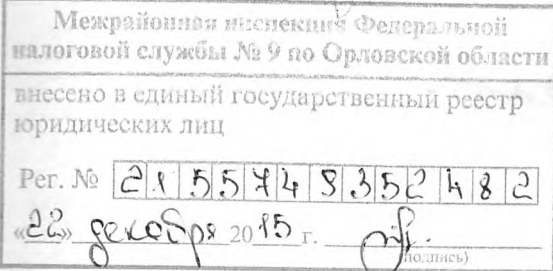 Межрайонная инспекция Федеральной
налоговой службы № 9 по Орловской области
внесено в единый государственный реестр
юридических лиц
Рег. № 2155749352482
«22» декабря 2015 г.
(подпись)